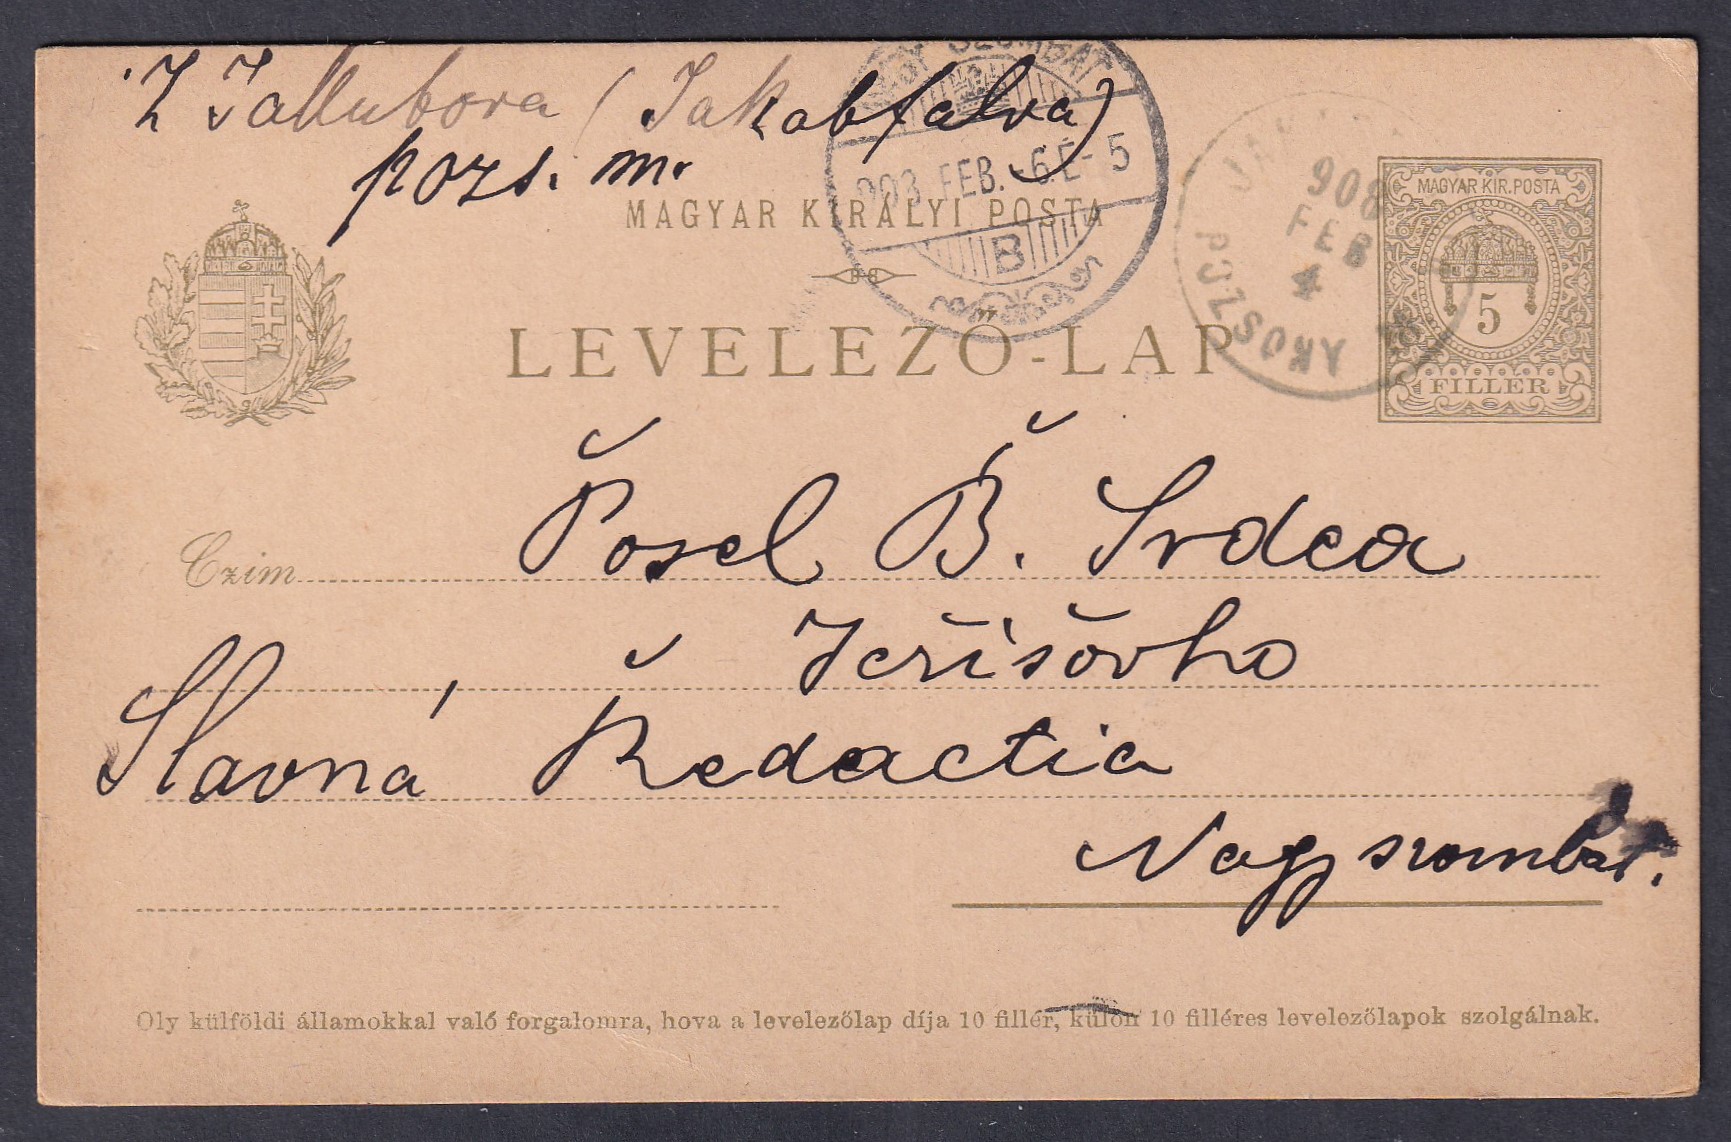 Z Jallubova (Jakabfalva)
pozs. m.
SZOMBAT
903. FEB. -6.É- 5
B
JAK
908
FEB
4
POZSO
MAGYAR KIR. POSTA
5
FILLÉR
MAGYAR KIRÁLYI POSTA
LEVELEZŐ-LAP
Czim
Posel B. Srdca
Ježišovho
Slavná Redactia
Nagyszombat.
Oly külföldi államokkal való forgalomra, hova a levelezőlap díja 10 fillér, külön 10 filléres levelezőlapok szolgálnak.